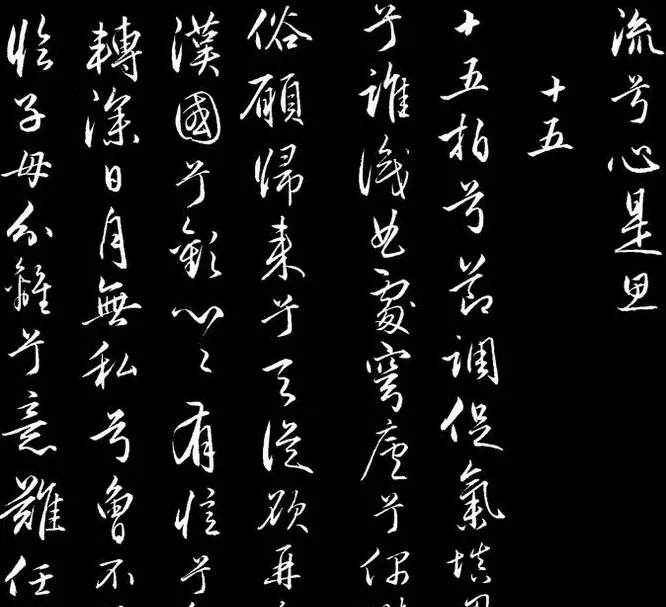 流兮心是思
十五
十五拍兮節調促氣填
兮誰識曲處穹廬兮偶
俗願歸來兮天從欲再
漢國兮歡心々有憶兮
轉深日月無私兮曾不
臨子母分離兮意難任